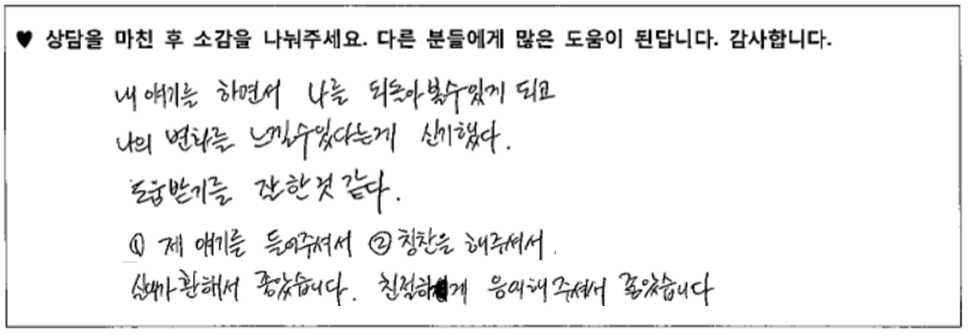 ♥ 상담을 마친 후 소감을 나눠주세요. 다른 분들에게 많은 도움이 된답니다. 감사합니다.
내 얘기를 하면서 나를 되돌아 볼수있게 되고
나의 변화를 느낄수있다는게 신기했다.
도움받기를 잘한것 같다.
① 제 얘기를 들어주셔서 ② 칭찬을 해주셔서.
환해서 좋았습니다. 친절하게 응대해주셔서 좋았습니다